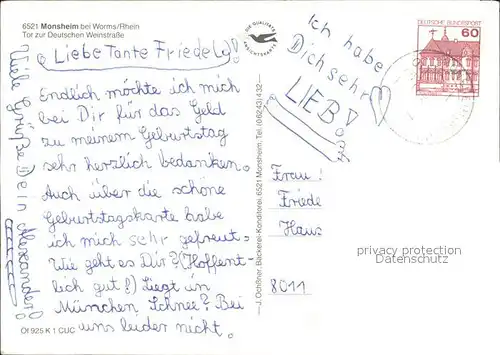 6521 Monsheim bei Worms/Rhein
Tor zur Deutschen Weinstraße
Liebe Tante Friedel!
Endlich möchte ich mich
bei Dir für das Geld
zu meinem Geburtstag
sehr herzlich bedanken.
Auch über die schöne
Geburtstagskarte habe
ich mich sehr gefreut.
Wie geht es Dir? (Hoffent-
lich gut!) Liegt in
München Schnee? Bei
uns leider nicht.
Viele Grüße Dein Alexander!
Öf 925 K 1 CUC
DIE QUALITÄTS
ANSICHTSKARTE
J. Ochßner, Bäckerei-Konditorei, 6521 Monsheim, Tel. (06243) 432
Ich habe
Dich sehr
LIEB!
DEUTSCHE BUNDESPOST
60
Frau
Friede
Haus
8011
privacy protection
Datenschutz